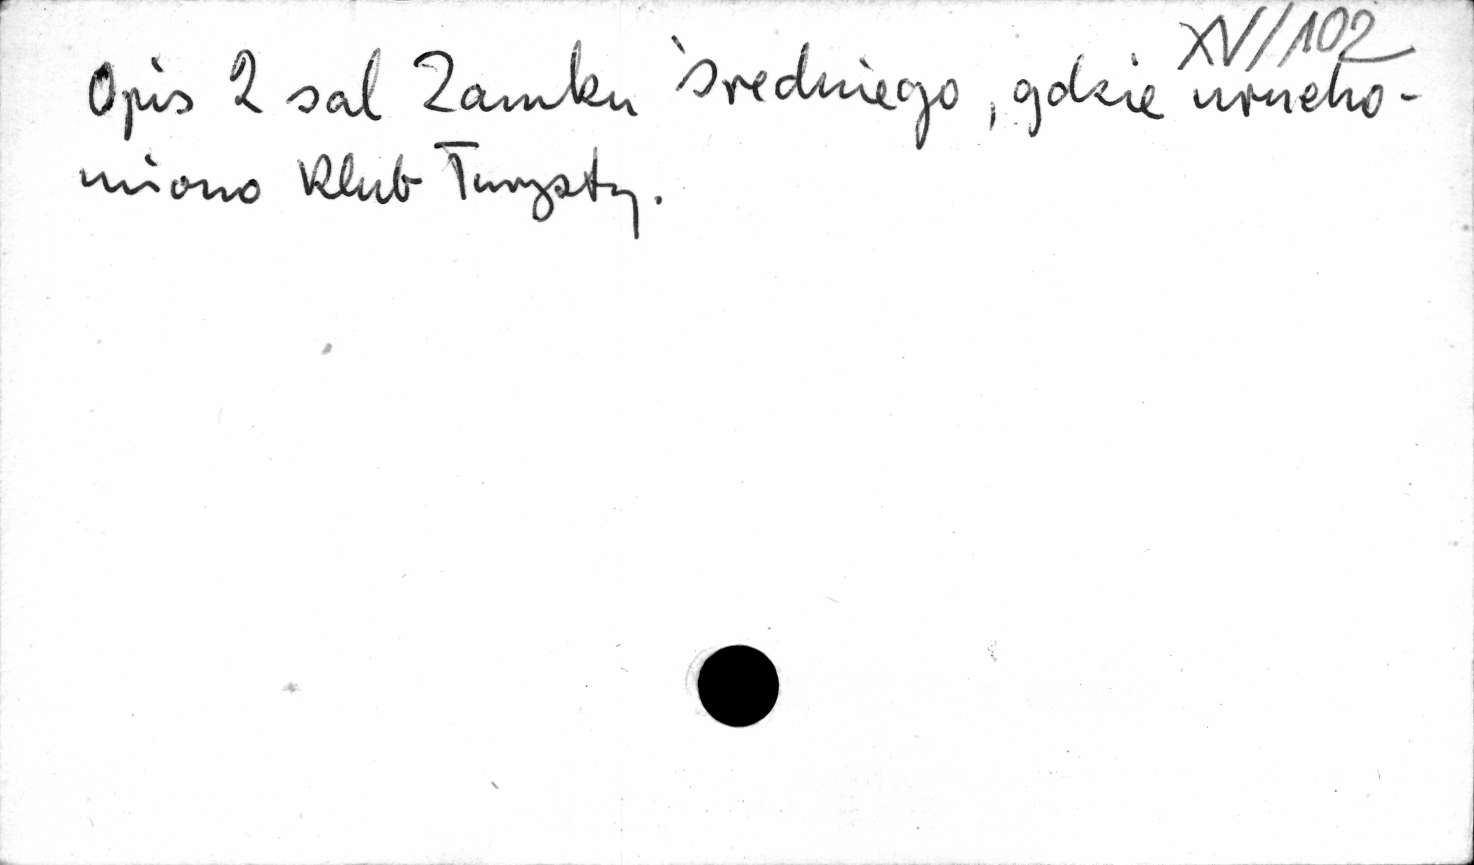 XV/102
Opis 2 sal Zamku Średniego, gdzie urucho-
miono Klub Turysty.